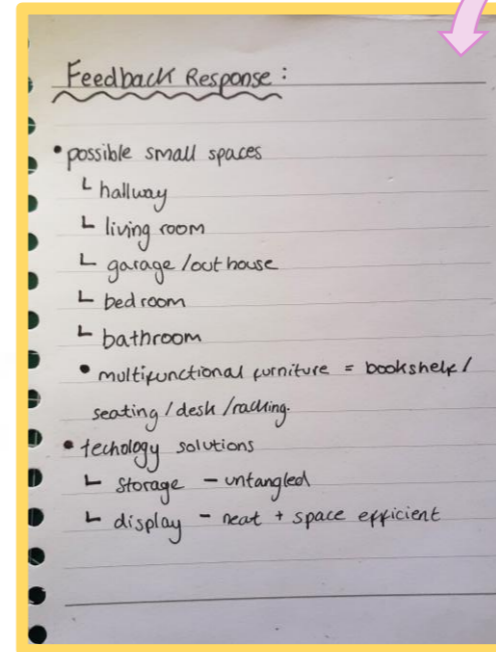 Feedback Response :
• possible small spaces
└ hallway
└ living room
└ garage / out house
└ bedroom
└ bathroom
• multifunctional furniture = bookshelf /
seating / desk / racking.
• techology solutions
└ Storage – untangled
└ display – neat + space efficient